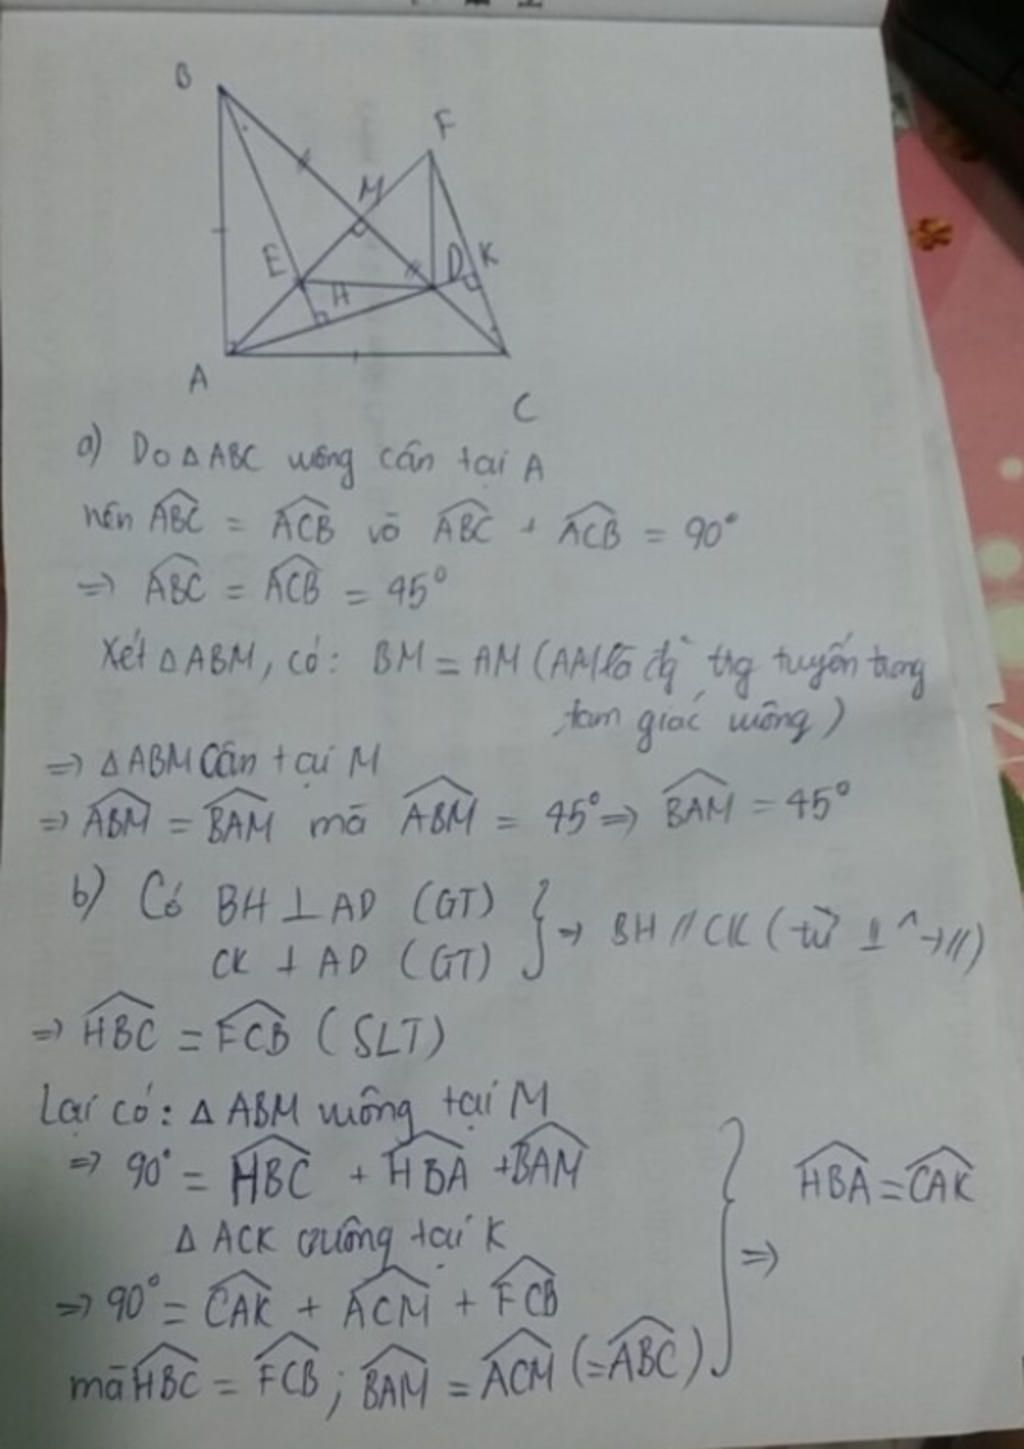 B
F
M
E
D K
H
A
C
a) Do △ABC vuông cân tại A
nên ABC = ACB và ABC + ACB = 90°
=> ABC = ACB = 45°
Xét △ABM, có: BM = AM (AM là đg trg tuyến trong
tam giác vuông)
=> △ABM cân tại M
=> ABM = BAM mà ABM = 45° => BAM = 45°
b) Có BH ⊥ AD (GT)
CK ⊥ AD (GT) } => BH // CK (từ ⊥ ^ → //)
=> HBC = FCB (SLT)
Lại có: △ ABM vuông tại M
=> 90° = HBC + HBA + BAM
△ ACK vuông tại K
=> 90° = CAK + ACM + FCB
mà HBC = FCB ; BAM = ACM (= ABC) } => HBA = CAK